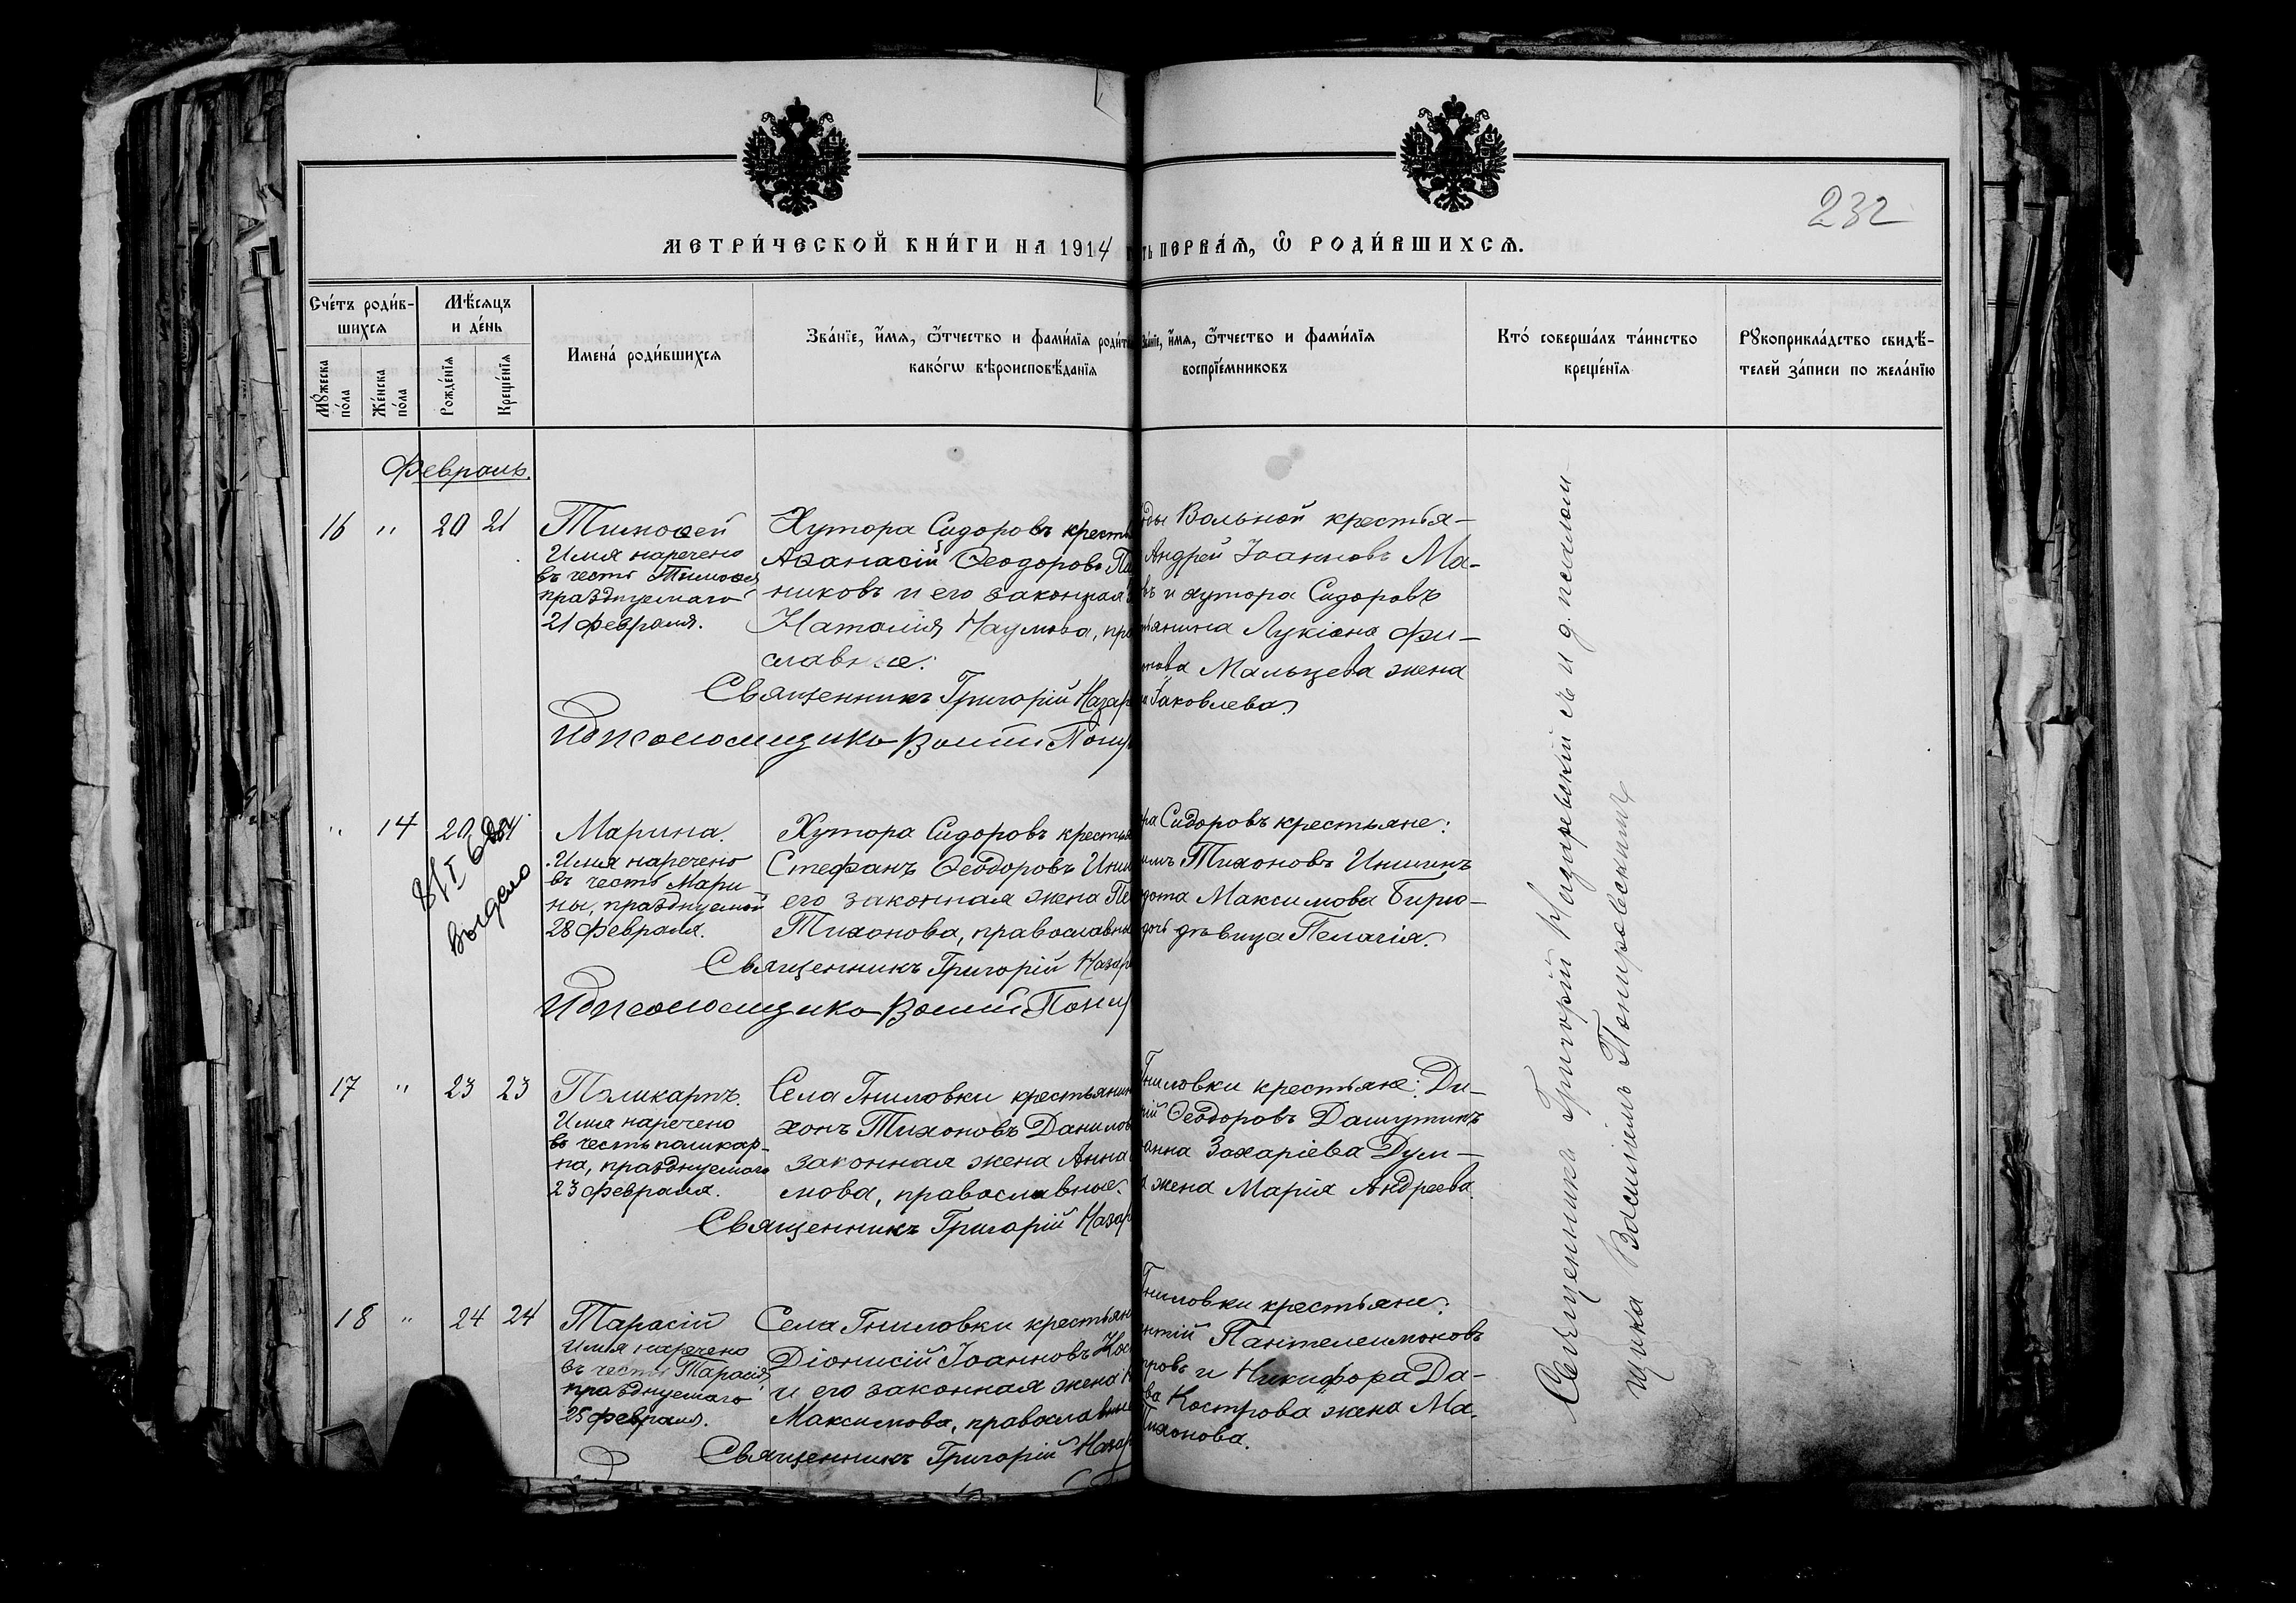 232
МЕТРИ́ЧЕСКОЙ КНИ́ГИ НА 1914
ть ПЕРВА́Я, Ѿ РОДИ́ВШИХСЯ.
Сче́тъ роди́в-
шихся
Мꙋ́жеска
по́ла
Же́нска
по́ла
Мѣ́сяцъ
и де́нь
Рожде́нїя
Креще́нїя
Имена́ роди́вшихся
Зва́нїе, и҆́мя, ѻ҆́тчество и фами́лїя роди́т
како́гѡ вѣроисповѣ́данїя
Зва́нїе, и҆́мя, ѻ҆́тчество и фами́лїя
воспрїе́мниковъ
Кто́ соверша́лъ та́инство
креще́нїя
Рꙋкоприкла́дство свидѣ́-
телей за́писи по жела́нїю
Февраль.
16 " 20 21
Тимоѳей
Имя наречено
въ честь Тимоѳея,
празднуемаго
21 февраля.
Хутора Сидоровъ кресть
Аѳанасій Ѳеодоровъ
никовъ и его законная
Наталія Наумова, пра
славные.
Священникъ Григорій Назар
И д псаломщика Васил Пону
ды Вольной крестья-
Андрей Іоанновъ Ма-
въ и хутора Сидоровъ
тянина Лукіана Фи-
онова Мальцева жена
Іаковлева.
" 14 20 21
выдено
Марина.
Имя наречено
въ честь Мари
ны, празднуемой
28 февраля.
Хутора Сидоровъ крестья
Стефанъ Ѳеодоровъ Инш
его законная жена Пе
Тихонова, православны
Священникъ Григорій Назар
И д псаломщика Васил Пону
ра Сидоровъ крестьяне:
имъ Тихоновъ Иншинъ
дота Максимова Бирю-
дочь дѣвица Пелагія.
17 " 23 23
Поликарпъ.
Имя наречено
въ честь поликар-
па, празднуемаго
23 февраля.
Села Гниловки крестьянин
хонъ Тихоновъ Данилов
законная жена Анна
мова, православные.
Священникъ Григорій Назар
Гниловки крестьяне: Ди-
рій Ѳеодоровъ Дашутинъ
анна Захаріева Дум-
жена Марія Андреева.
18 " 24 24
Тарасій
Имя наречено
въ честь Тарасія,
празднуемаго
25 февраля.
Села Гниловки крестьян
Діонисій Іоанновъ Кос
и его законная жена
Максимова, православные
Священникъ Григорій Назар
Гниловки крестьяне:
нтій Пантелеимоновъ
тровъ и Никифора Да-
ва Кострова жена Ма.
Тихонова.
Священникъ Григорій Назаревскій съ и д. псалом-
щика Василіемъ Понировскимъ